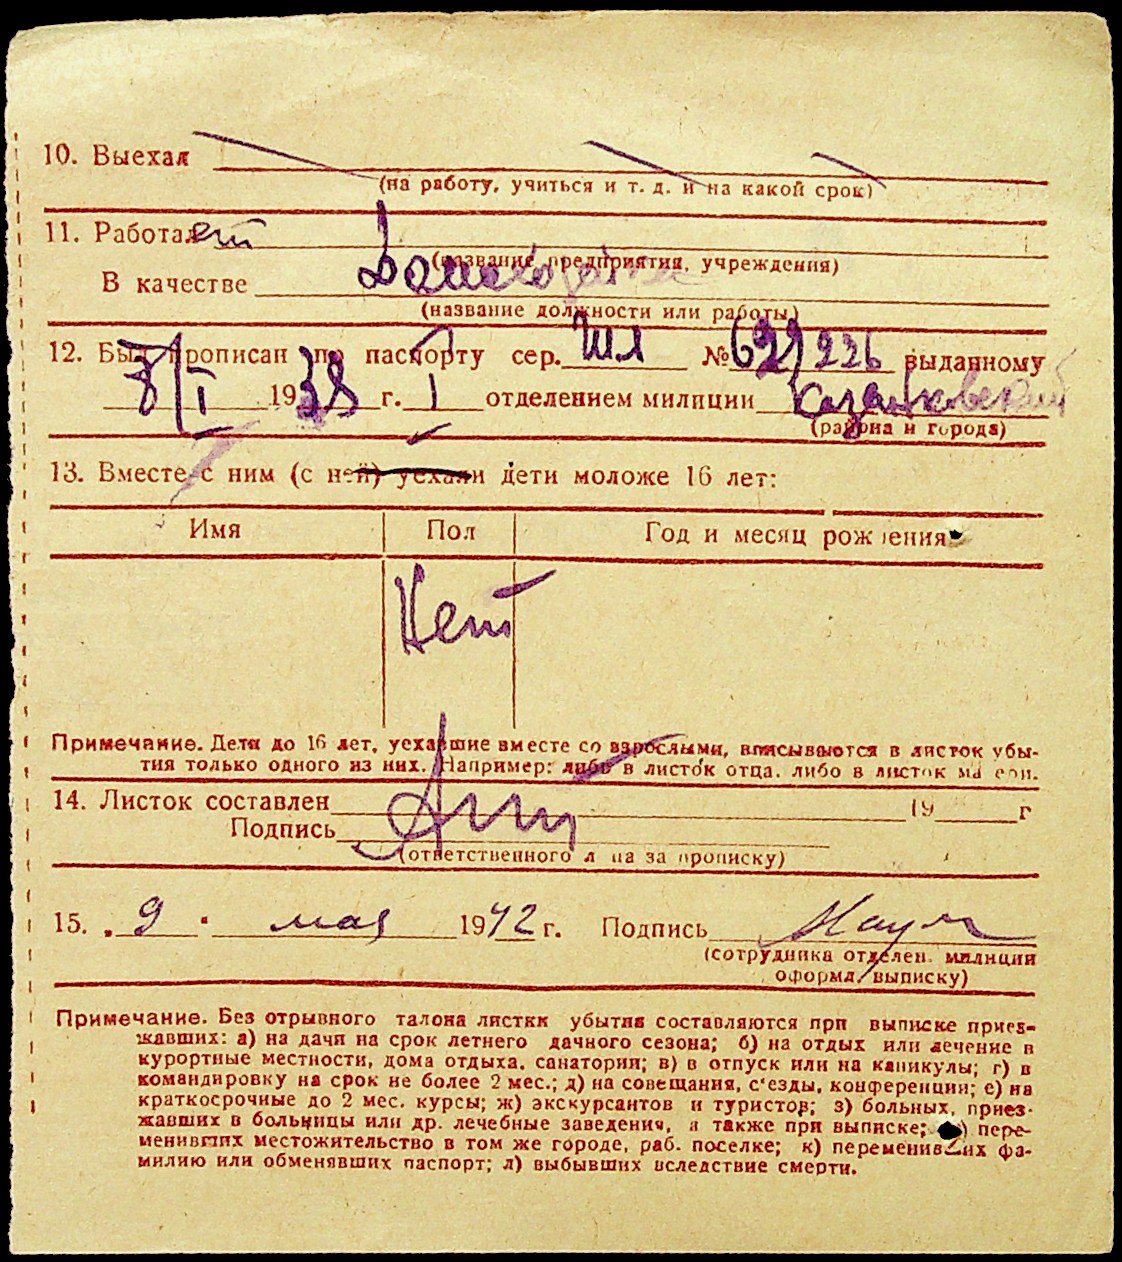 10. Выехал
(на работу, учиться и т. д. и на какой срок)
11. Работает
(название предприятия, учреждения)
В качестве Домохозяйка
(название должности или работы)
12. Был прописан по паспорту сер. ШЛ № 629226 выданному
8/I 1938 г. I отделением милиции
(района и города)
13. Вместе с ним (с ней) уехали дети моложе 16 лет:
Имя Пол Год и месяц рождения
Нет
Примечание. Дети до 16 лет, уехавшие вместе со взрослыми, вписываются в листок убы-
тия только одного из них. Например: либо в листок отца, либо в листок матери.
14. Листок составлен 19 г
Подпись
(ответственного лица за прописку)
15. „ 9 " мая 1942 г. Подпись
(сотрудника отделен. милиции
оформл. выписку)
Примечание. Без отрывного талона листки убытия составляются при выписке приез-
жавших: а) на дачи на срок летнего дачного сезона; б) на отдых или лечение в
курортные местности, дома отдыха, санатории; в) в отпуск или на каникулы; г) в
командировку на срок не более 2 мес.; д) на совещания, с'езды, конференции; е) на
краткосрочные до 2 мес. курсы; ж) экскурсантов и туристов; з) больных, приез-
жавших в больницы или др. лечебные заведения, а также при выписке; и) пере-
менивших местожительство в том же городе, раб. поселке; к) переменивших фа-
милию или обменявших паспорт; л) выбывших вследствие смерти.